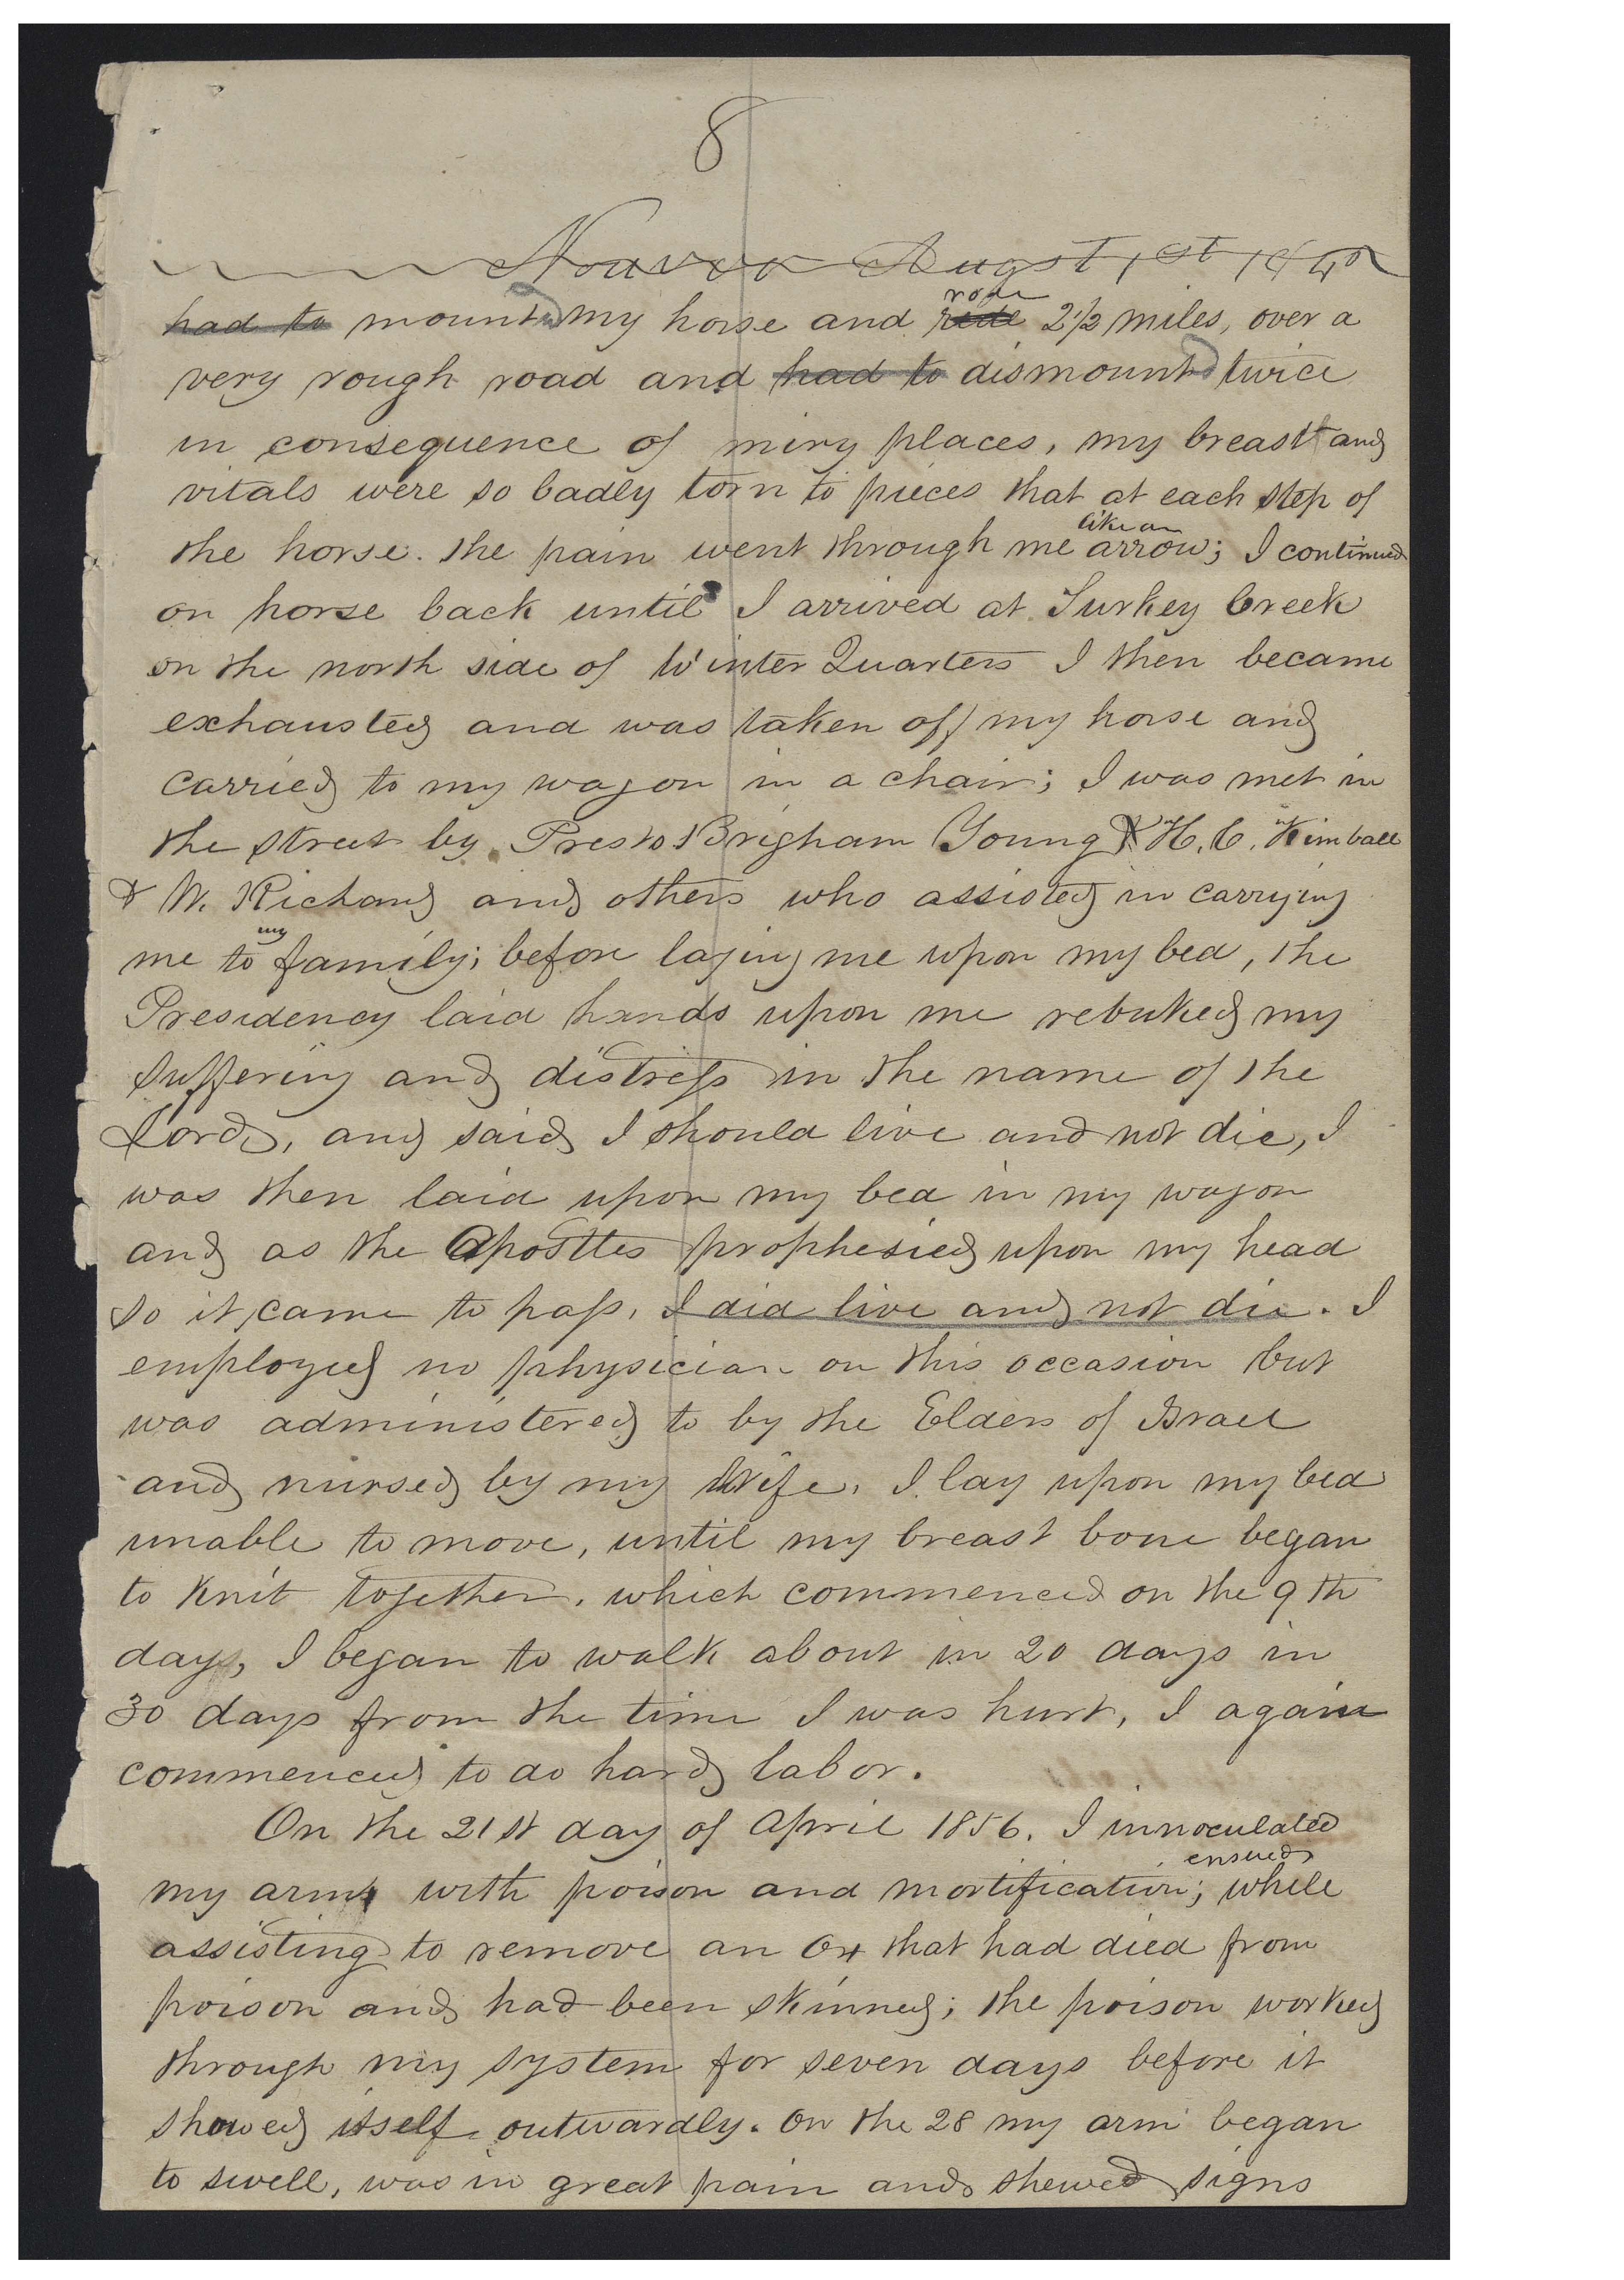 8
Nauvoo August 1st 184
had to mounted my horse and ride rode 2 1/2 miles, over a
very rough road and had to dismounted twice
in consequence of miry places, my breast and
vitals were so badly torn to pieces that at each step of
the horse. the pain went through me like an arrow; I continued
on horse back until I arrived at Turkey Creek
on the north side of Winter Quarters I then became
exhausted and was taken off my horse and
carried to my wagon in a chair; I was met in
the street by Presto Brigham Young & H. C. Kimball
& W. Richard and others who assisted in carrying
me to my family; before laying me upon my bed, the
Presidency laid hands upon me rebuked my
suffering and distress in the name of the
Lord, and said I should live and not die, I
was then laid upon my bed in my wagon
and as the Apostles prophesied upon my head
so it came to pass, I did live and not die. I
employed no physician on this occasion but
was administered to by the Elders of Israel
and nursed by my Wife, I lay upon my bed
unable to move, until my breast bone began
to knit together, which commenced on the 9th
day, I began to walk about in 20 days in
30 days from the time I was hurt, I again
commenced to do hard labor.
On the 21st day of April 1856. I innoculated
my arm with poison and mortification ensued; while
assisting to remove an Ox that had died from
poison and had been skinned; the poison worked
through my system for seven days before it
showed itself outwardly. On the 28 my arm began
to swell, was in great pain and shewed signs